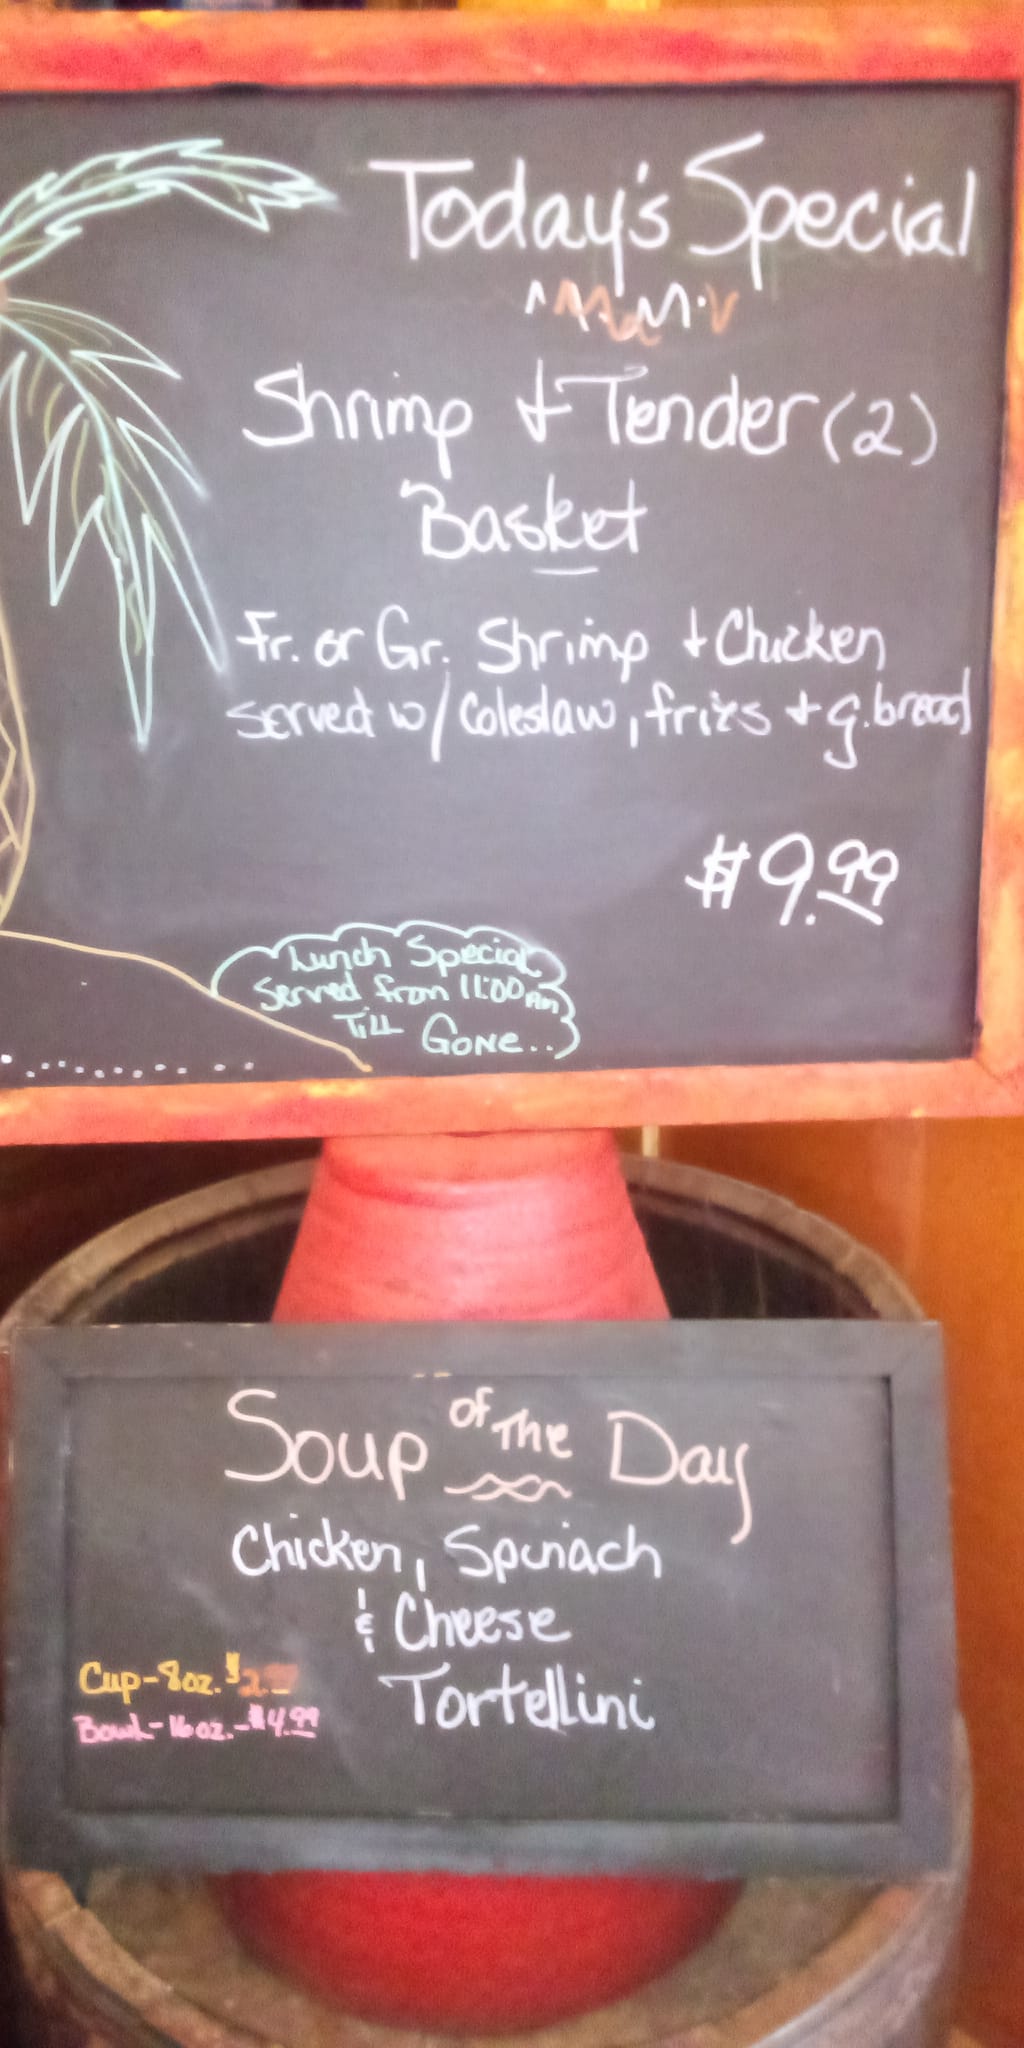 Today's Special
Shrimp + Tender (2)
Basket
Fr. or Gr. Shrimp + Chicken
served w/ Coleslaw, fries + g.bread
$9.99
Lunch Special
Served from 11:00 Am
Till Gone..
Soup of The Day
Chicken, Spinach
& Cheese
Tortellini
Cup-8oz. $2.
Bowl-16oz.-$4.99